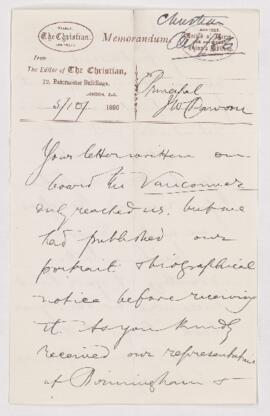 Christian
The Christian.
Memorandum
From
The Editor of The Christian,
12, Paternoster Buildings,
LONDON, E.C.
5/10/ 1886
Principal
J W Dawson
Your letter written on
board the Vancouver
duly reached us, but we
had published our
portrait & biographical
notice before receiving
it. As you kindly
received our representative
at Birmingham &